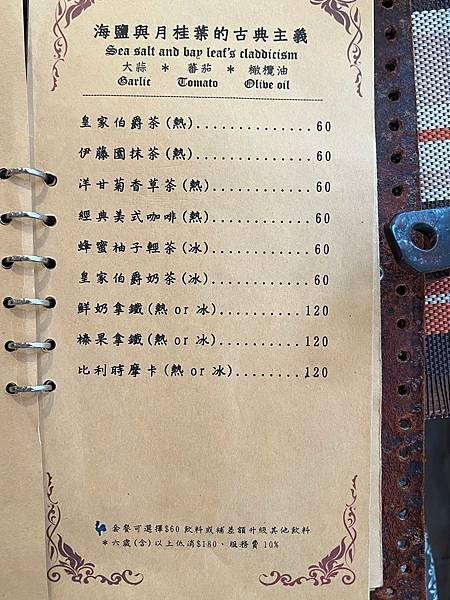 海鹽與月桂葉的古典主義
Sea salt and bay leaf's claddicism
大蒜 * 蕃茄 * 橄欖油
Garlic Tomato Olive oil
皇家伯爵茶(熱)..............60
伊藤園抹茶(熱)..............60
洋甘菊香草茶(熱)............60
經典美式咖啡(熱)............60
蜂蜜柚子輕茶(冰)............60
皇家伯爵奶茶(冰)............60
鮮奶拿鐵(熱 or 冰)..........120
榛果拿鐵(熱 or 冰)..........120
比利時摩卡(熱 or 冰)........120
套餐可選擇$60飲料或補差額升級其他飲料
*六歲(含)以上低消$180、服務費10%